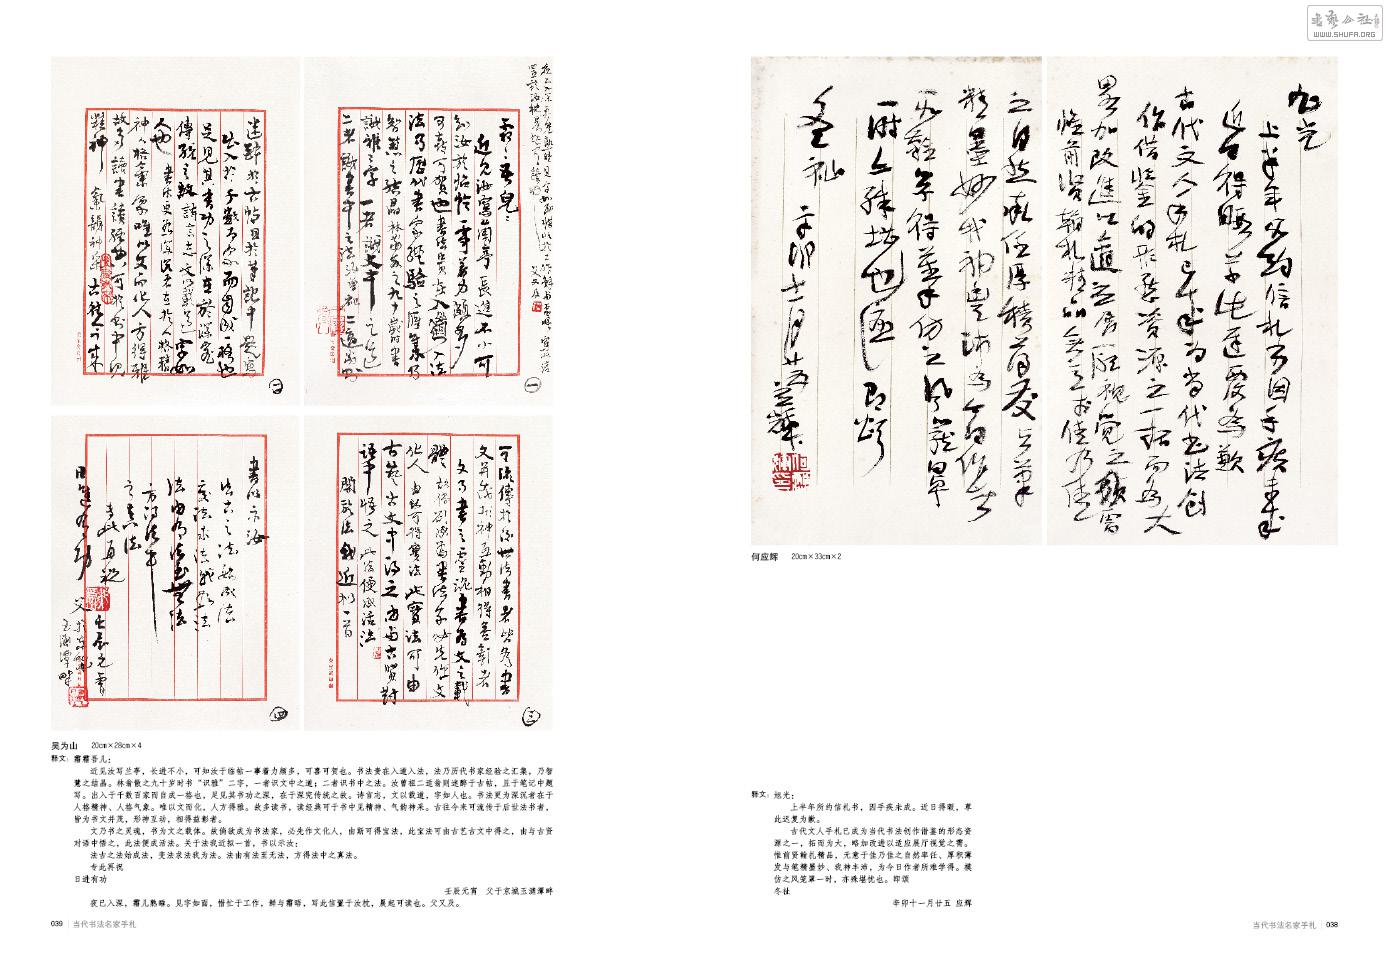 书艺公社
WWW.SHUFA.ORG
吴为山 20cm×28cm×4
释文：霜霜吾儿：
近见汝写兰亭，长进不小，可知汝于临帖一事着力颇多，可喜可贺也。书法贵在入道入法，法乃历代书家经验之汇集，乃智
慧之结晶。林翁散之九十岁时书“识雅”二字，一者识文中之道；二者识书中之法。汝曾祖二适翁则迷醉于古帖，且于笔记中题
写。出入于千数百家而自成一格也，足见其书功之深，在于深究传统之故。诗言志，文以载道，字如人也。书法更为深沉者在于
人格精神、人格气象。唯以文而化，人方得雅。故多读书，读经典可于书中见精神、气韵神采。古往今来可流传于后世法书者，
皆为书文并茂，形神互动，相得益彰者。
文乃书之灵魂，书为文之载体。故倘欲成为书法家，必先作文化人，由斯可得宝法，此宝法可由古艺古文中得之，由与古贤
对语中悟之，此法便成活法。关于法我近拟一首，书以示汝：
法古之法始成法，变法求法我为法。法由有法至无法，方得法中之真法。
专此再祝
日进有功
壬辰元宵 父于京城玉渊潭畔
夜已入深，霜儿熟睡。见字如面，惜忙于工作，鲜与霜晤，写此信置于汝枕，晨起可读也。父又及。
039 当代书法名家手札
何应辉 20cm×33cm×2
释文：旭光：
上半年所约信札书，因手疾未成。近日得暇，草
此迟复为歉。
古代文人手札已成为当代书法创作借鉴的形态资
源之一，拓而为大，略加改进以适应展厅视觉之需。
惟前贤翰札精品，无意于佳乃佳之自然率任、厚积薄
发与笔精墨妙、我神丰沛，为今日作者所难学得。模
仿之风笼罩一时，亦殊堪忧也。即颂
冬祉
辛卯十一月廿五 应辉
当代书法名家手札 038